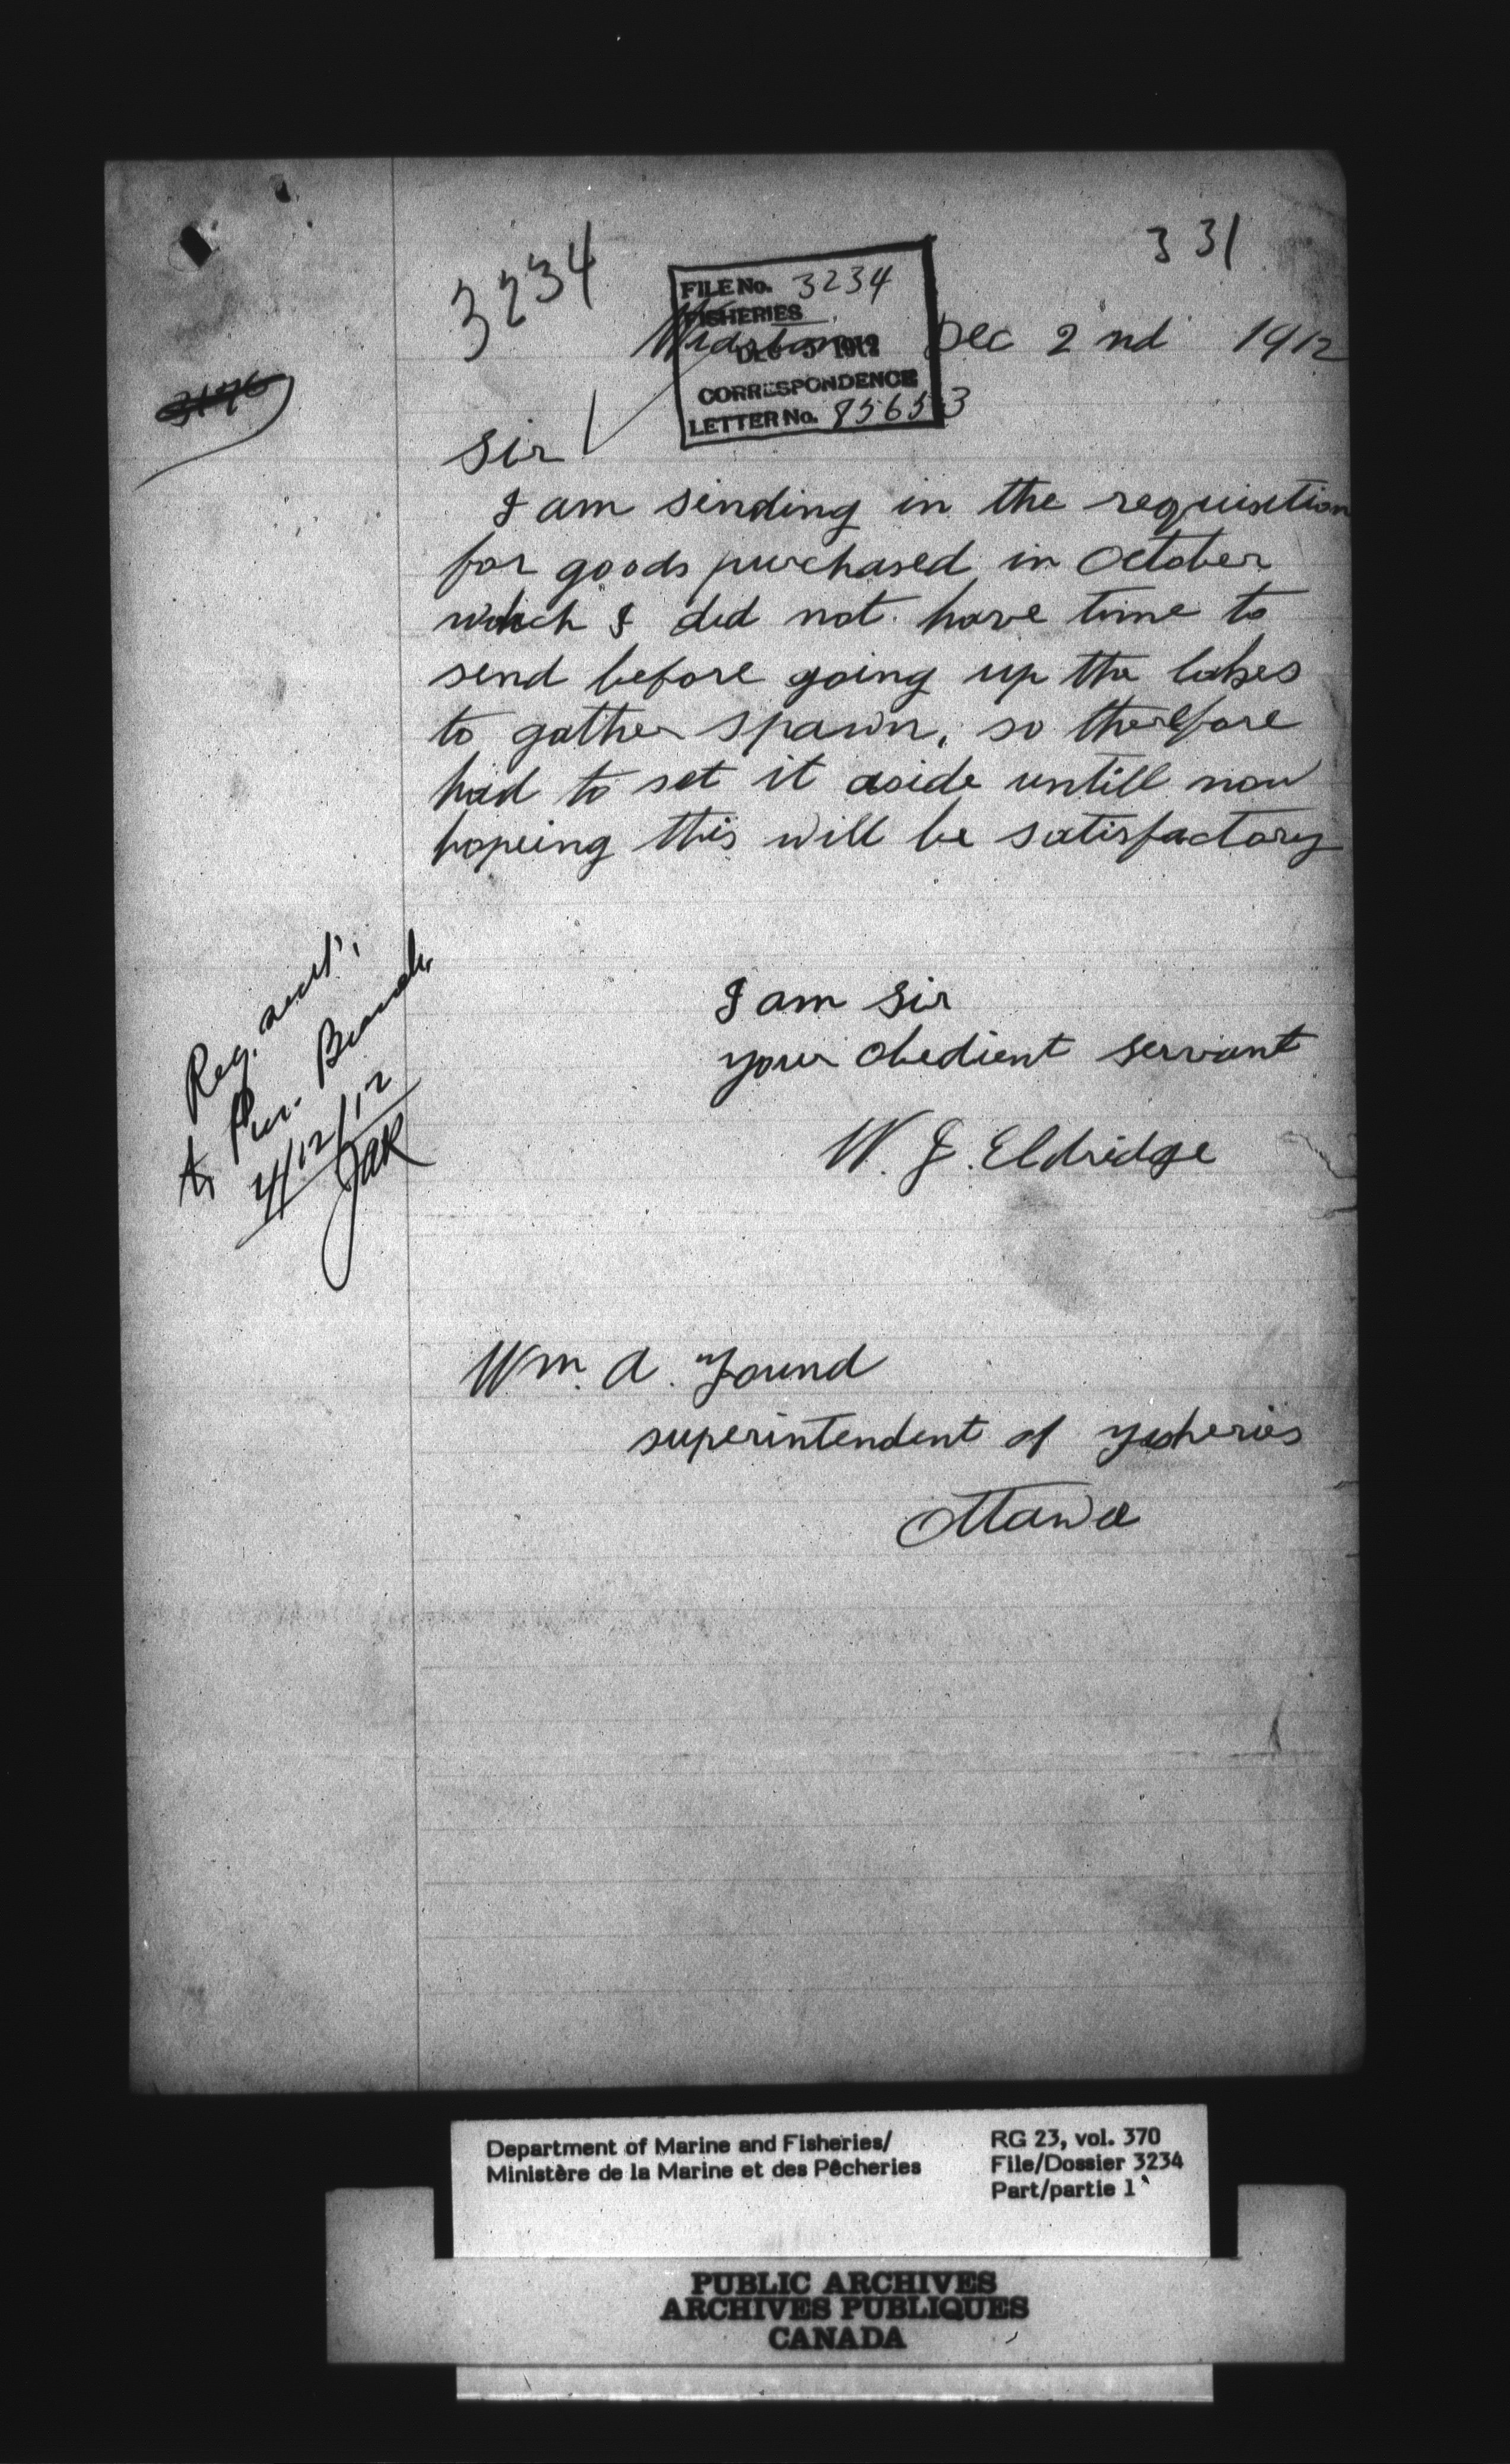 331
3234
FILE No. 3234
FISHERIES
DEC 5 1912
CORRESPONDENCE
LETTER No. 85653
Dec 2nd 1912
Sir
I am sending in the requisition
for goods purchased in October
which I did not have time to
send before going up the lakes
to gather spawn, so therefore
had to set it aside untill now
hopeing this will be satisfactory
I am Sir
your obedient servant
W. J. Eldridge
Req. sent
to Pur. Branch
4/12/12
JAR
Wm. A. Found
superintendent of fisheries
Ottawa
Department of Marine and Fisheries/
Ministère de la Marine et des Pêcheries
RG 23, vol. 370
File/Dossier 3234
Part/partie 1
PUBLIC ARCHIVES
ARCHIVES PUBLIQUES
CANADA